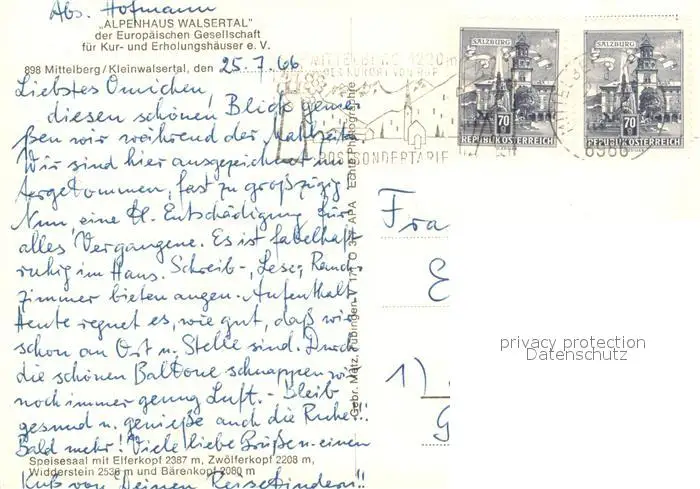 Abs. Hofmann
„ALPENHAUS WALSERTAL"
der Europäischen Gesellschaft
für Kur- und Erholungshäuser e. V.
898 Mittelberg / Kleinwalsertal, den 25.7.66
Liebstes Omichen,
diesen schönen Blick genie-
ßen wir während der Mahlzeit.
Wir sind hier ausgezeichnet un-
tergekommen, fast zu großzügig!
Nun, eine kl. Entschädigung für
alles Vergangene. Es ist fabelhaft
ruhig im Haus. Schreib-, Lese-, Rauch-
zimmer bieten angen. Aufenthalt.
Heute regnet es, wie gut, daß wir
schon an Ort u. Stelle sind. Durch
die schönen Balkone schnappen wir
noch immer genug Luft. - Bleib
gesund u. genieße auch die Ruhe!!
Bald mehr! Viele liebe Grüße u. einen
Kuß von Deinen Reisekindern!!
Speisesaal mit Elferkopf 2387 m, Zwölferkopf 2208 m,
Widderstein 2536 m und Bärenkopf 2080 m
Gebr. Metz, Tübingen APA Echte Photographie
MITTELBERG 1220 m
POSTSONDERTARIF
SALZBURG
70
REPUBLIK ÖSTERREICH
SALZBURG
70
REPUBLIK ÖSTERREICH
6986
Fra
E
1)
G
privacy protection
Datenschutz